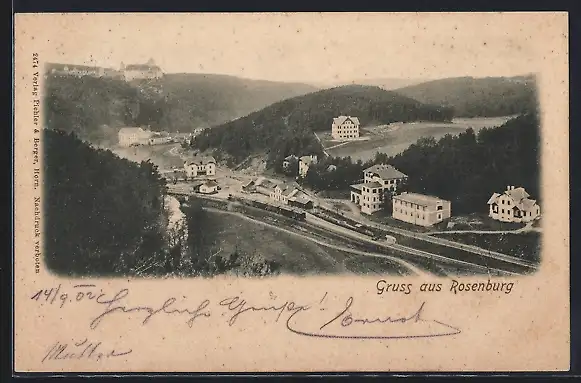 2474 Verlag Pichler & Berger, Horn. Nachdruck verboten
Gruss aus Rosenburg
14/9. 02 Herzliche Grüße! Ernest
Mutter